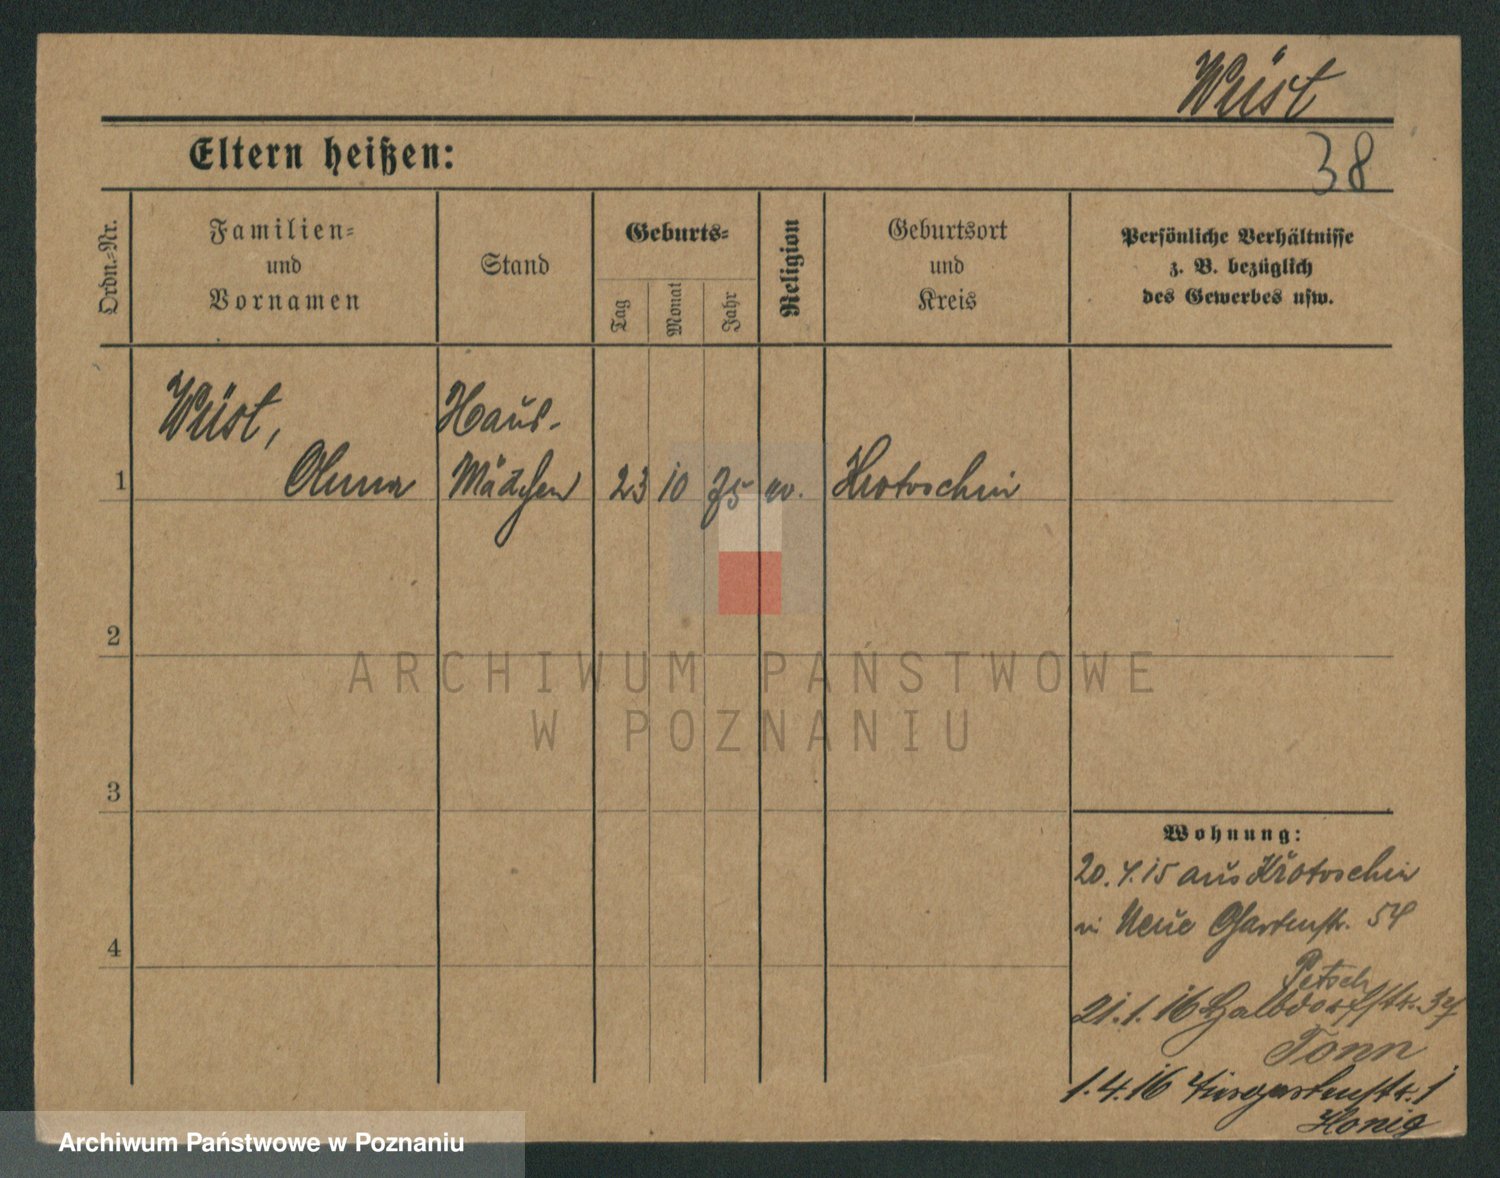 Wüst
38
Eltern heißen:
Ordn.-Nr.
Familien-
und
Vornamen
Stand
Geburts-
Tag
Monat
Jahr
Religion
Geburtsort
und
Kreis
Persönliche Verhältnisse
z. B. bezüglich
des Gewerbes usw.
1
Wüst,
Haus-
Mädchen
23
10
75
ev.
Krotoschin
2
3
4
Wohnung:
20. 4. 15 aus Krotoschin
in Neue Gartenstr. 54
Petsch
21. 1. 16 Halbdorfstr. 37
Tonn
1. 4. 16 Tiergartenstr. 1
Honig
ARCHIWUM PAŃSTWOWE
W POZNANIU
Archiwum Państwowe w Poznaniu